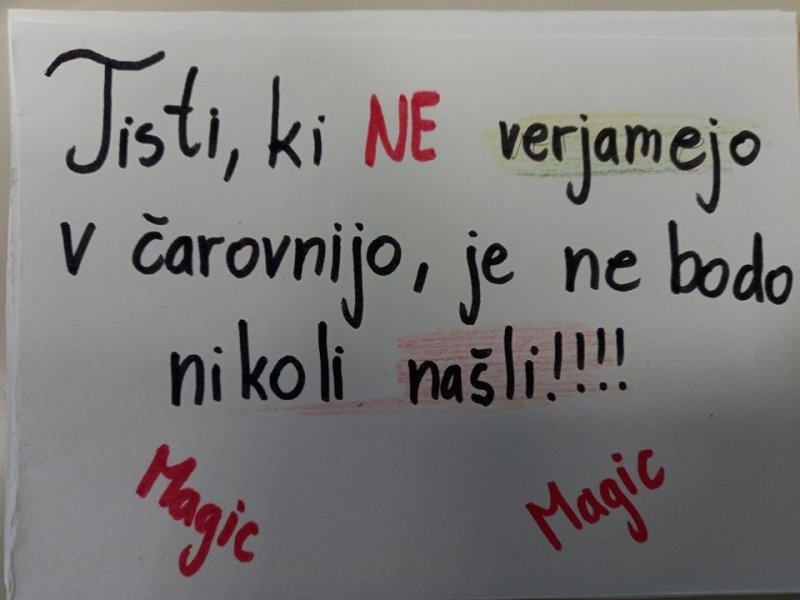 Tisti, ki NE verjamejo
v čarovnijo, je ne bodo
nikoli našli!!!!
Magic
Magic